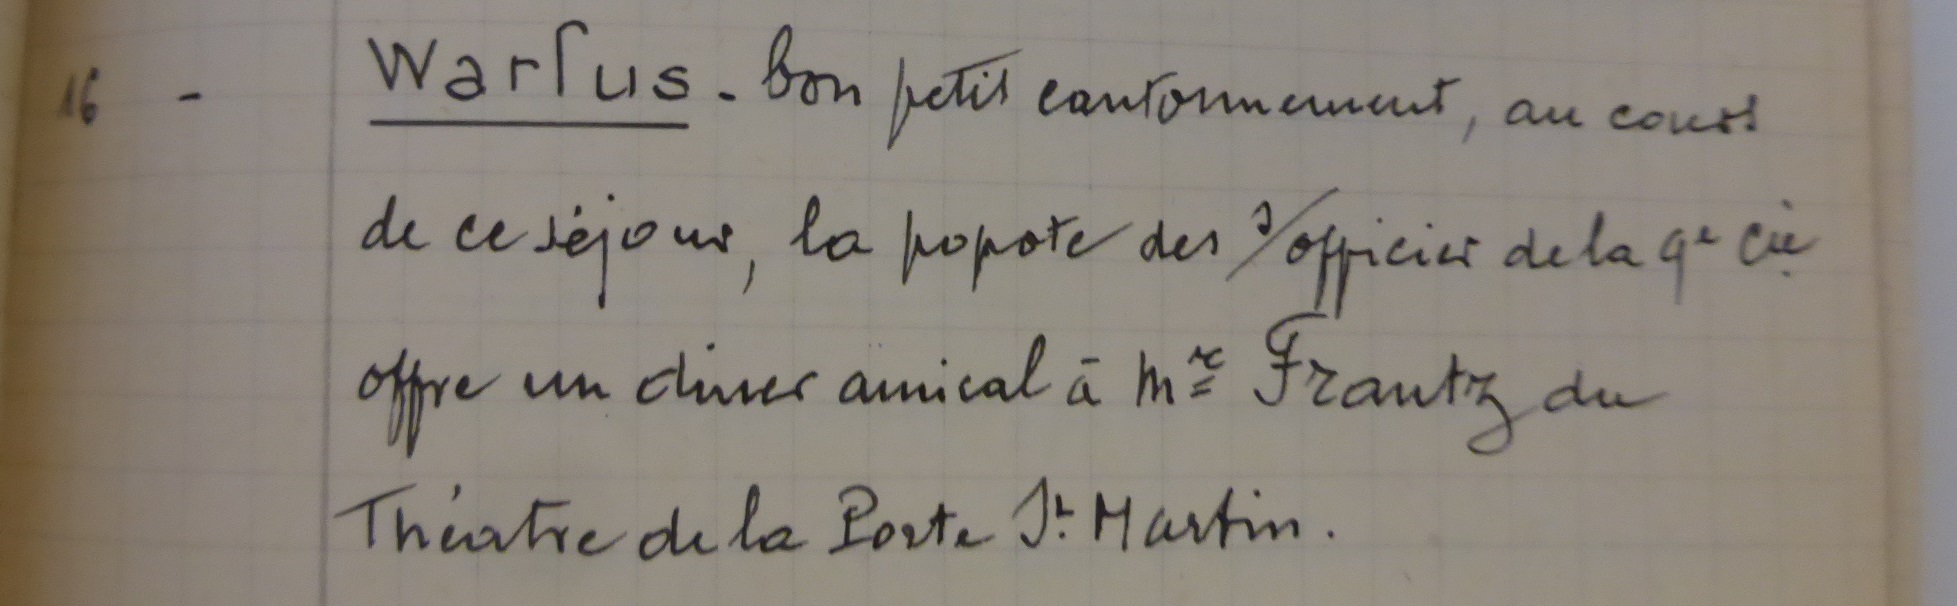 16 - Warlus - bon petit cantonnement, au cours
de ce séjour, la popote des s/officier de la 9e Cie
offre un diner amical à Mr Frantz du
Théatre de la Porte St. Martin.